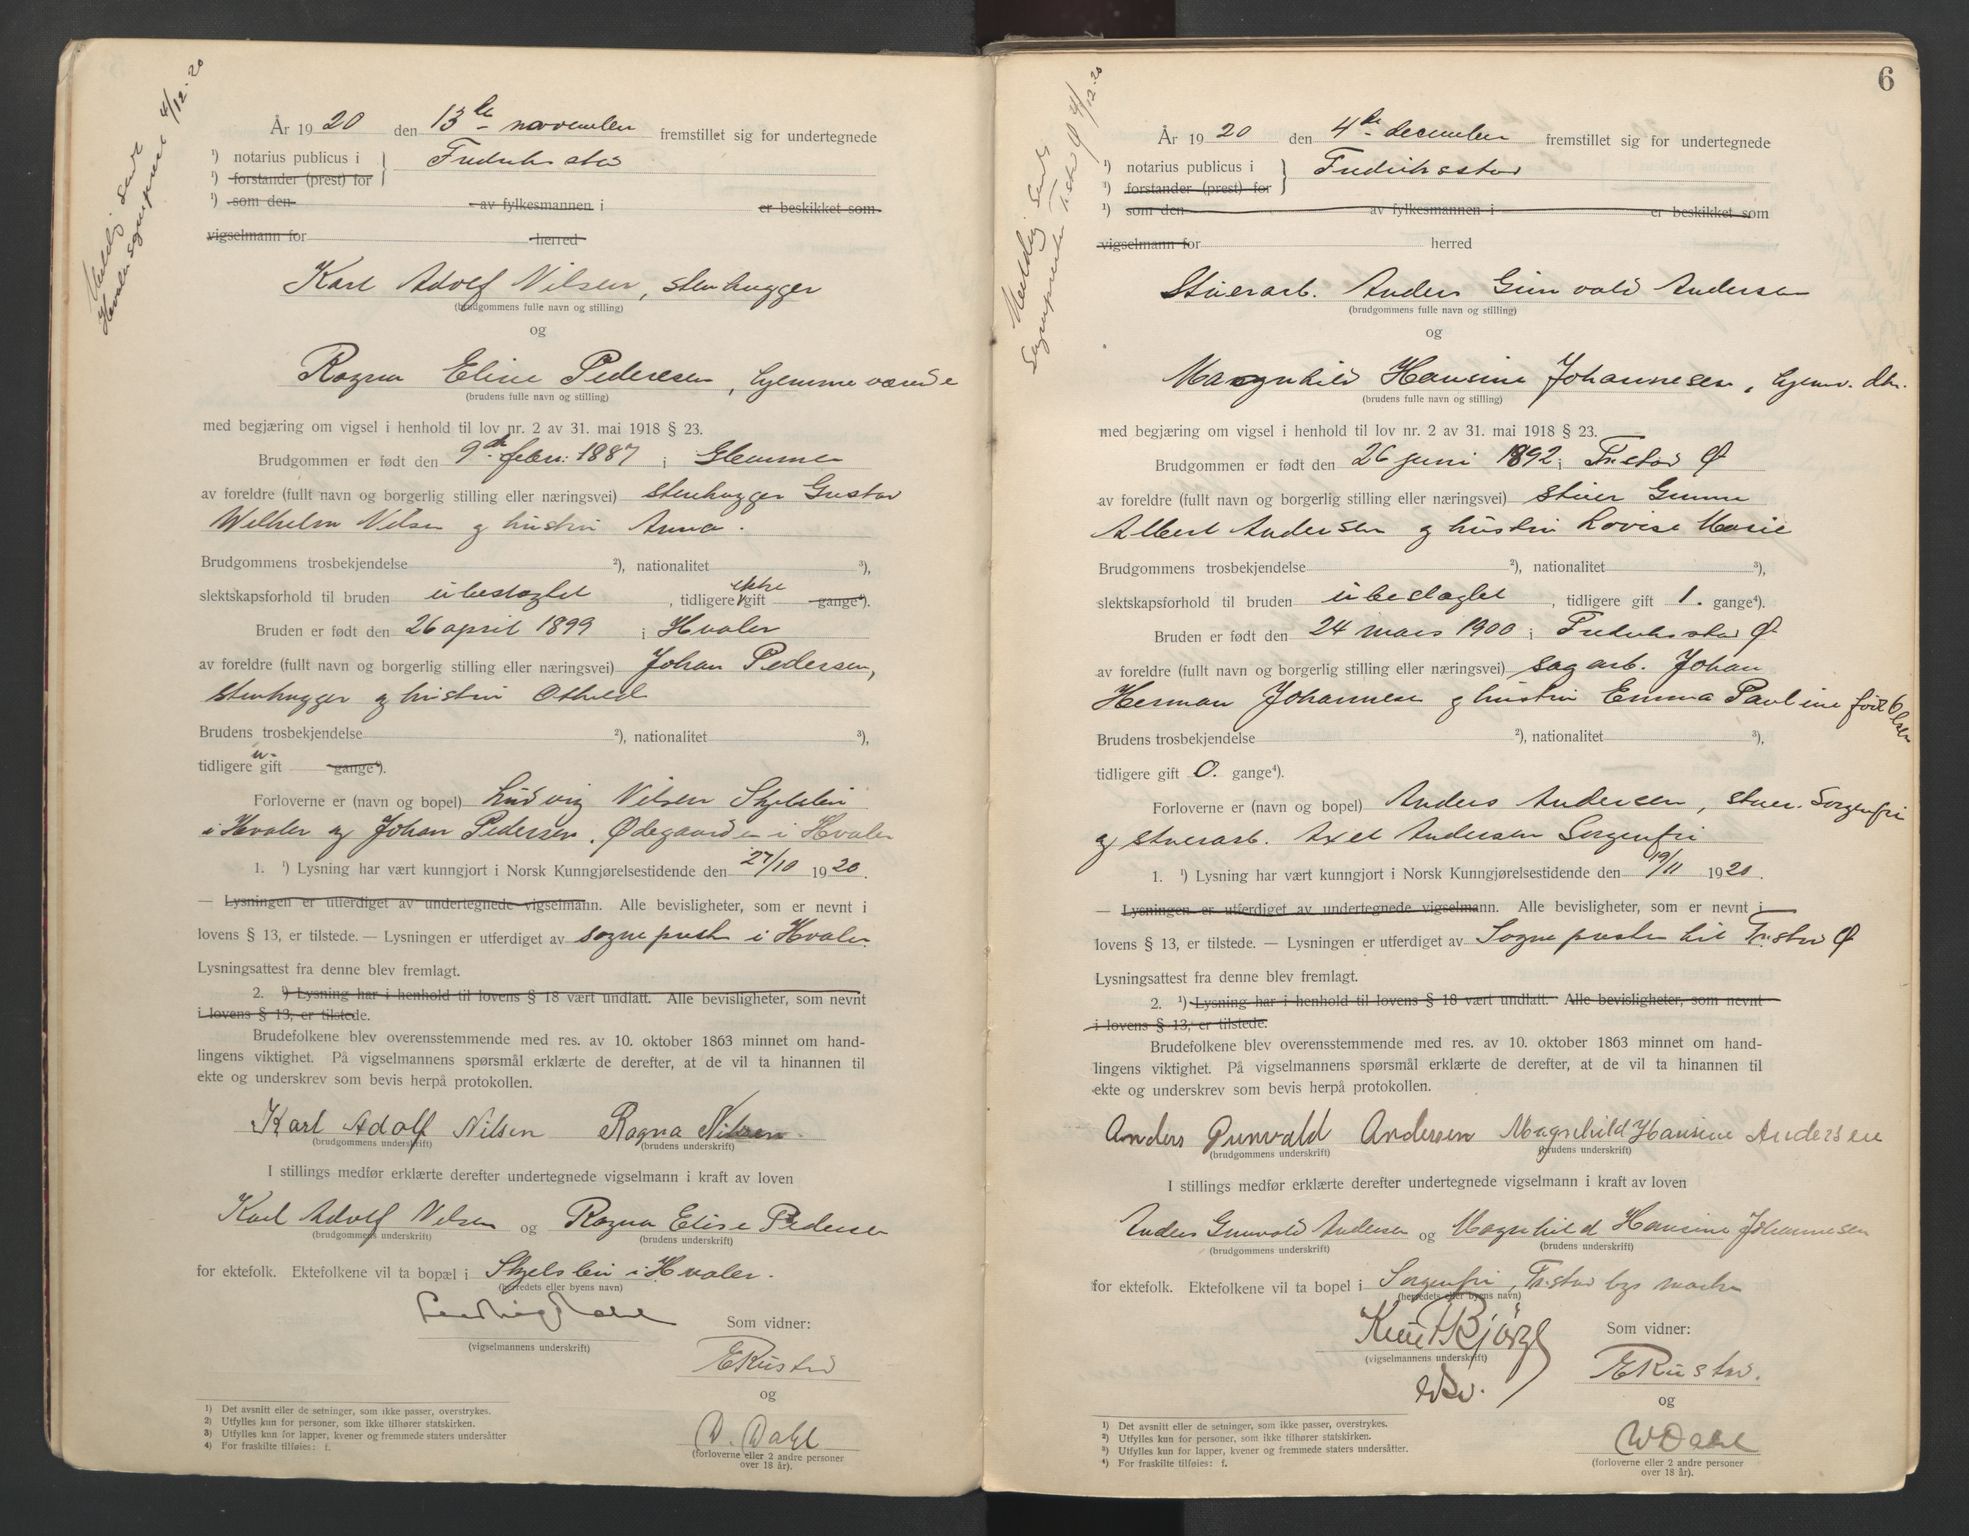 Melding sendt
Hvaler sogneprest 4/12.20
År 1920 den 13de november fremstillet sig for undertegnede
¹) notarius publicus i } Fredriksstad
¹) forstander (prest) for
¹) som den av fylkesmannen i er beskikket som
vigselmann for herred
Karl Adolf Nilsen, stenhugger
(brudgommens fulle navn og stilling)
og
Ragna Elise Pedersen, hjemmeværende
(brudens fulle navn og stilling)
med begjæring om vigsel i henhold til lov nr. 2 av 31. mai 1918 § 23.
Brudgommen er født den 9de febr. 1887 i Glemmen
av foreldre (fullt navn og borgerlig stilling eller næringsvei) stenhugger Gustav
Wilhelm Nilsen og hustru Anna.
Brudgommens trosbekjendelse ²), nationalitet ³),
slektskapsforhold til bruden ubeslagtet, tidligere ikke gift gange⁴).
Bruden er født den 26 april 1899 i Hvaler
av foreldre (fullt navn og borgerlig stilling eller næringsvei) Johan Pedersen,
stenhugger og hustru Othild
Brudens trosbekjendelse ²), nationalitet ³),
tidligere u- gift gange⁴).
Forloverne er (navn og bopel) Ludvig Nilsen Skjelsbu
i Hvaler og Johan Pedersen, Ødegaarden i Hvaler
1. ¹) Lysning har vært kunngjort i Norsk Kunngjørelsestidende den 27/10 1920.
— Lysningen er utferdiget av undertegnede vigselmann. Alle bevisligheter, som er nevnt i
lovens § 13, er tilstede. — Lysningen er utferdiget av sogneprest i Hvaler.
Lysningsattest fra denne blev fremlagt.
2. ¹) Lysning har i henhold til lovens § 18 vært undlatt. Alle bevisligheter, som nevnt
i lovens § 13, er tilstede.
Brudefolkene blev overensstemmende med res. av 10. oktober 1863 minnet om hand-
lingens viktighet. På vigselmannens spørsmål erklærte de derefter, at de vil ta hinannen til
ekte og underskrev som bevis herpå protokollen.
Karl Adolf Nilsen Ragna Nilsen
(brudgommens underskrift) (brudens underskrift)
I stillings medfør erklærte derefter undertegnede vigselmann i kraft av loven
Karl Adolf Nilsen og Ragna Elise Pedersen
(brudgommens underskrift) (brudens underskrift)
for ektefolk. Ektefolkene vil ta bopæl i Skjelsbu i Hvaler.
(herredets eller byens navn)
(vigselmannens underskrift)
Som vidner:
E Rustad
og
W. Dahl
(forloverne eller 2 andre personer
over 18 år).
1) Det avsnitt eller de setninger, som ikke passer, overstrykes.
2) Utfylles kun for personer, som ikke tilhører statskirken.
3) Utfylles kun for lapper, kvener og fremmede staters undersåtter
4) For fraskilte tilføies: f.
6
Melding sendt
sognepresten Fr.stad Ø 4/12.20
År 1920 den 4de december fremstillet sig for undertegnede
¹) notarius publicus i } Fredriksstad
¹) forstander (prest) for
¹) som den av fylkesmannen i er beskikket som
vigselmann for herred
Stuerarb. Anders Gunvald Andersen
(brudgommens fulle navn og stilling)
og
Magnhild Hansine Johannesen, hjemv. dtr.
(brudens fulle navn og stilling)
med begjæring om vigsel i henhold til lov nr. 2 av 31. mai 1918 § 23.
Brudgommen er født den 26 juni 1892 i Fr.stad Ø
av foreldre (fullt navn og borgerlig stilling eller næringsvei) stuer
Albert Andersen og hustru Lovise Marie
Brudgommens trosbekjendelse ²), nationalitet ³),
slektskapsforhold til bruden ubeslagtet, tidligere gift 1. gange⁴).
Bruden er født den 24 mars 1900 i Fredriksstad Ø
av foreldre (fullt navn og borgerlig stilling eller næringsvei) sagarb. Johan
Herman Johannesen og hustru Emma Pauline født Olsen
Brudens trosbekjendelse ²), nationalitet ³),
tidligere gift 0. gange⁴).
Forloverne er (navn og bopel) Anders Andersen, stuer. Sorgenfri
og stuerarb. Axel Andersen Sorgenfri
1. ¹) Lysning har vært kunngjort i Norsk Kunngjørelsestidende den 19/11 1920.
— Lysningen er utferdiget av undertegnede vigselmann. Alle bevisligheter, som er nevnt i
lovens § 13, er tilstede. — Lysningen er utferdiget av Sognepresten til Fr.stad Ø
Lysningsattest fra denne blev fremlagt.
2. ¹) Lysning har i henhold til lovens § 18 vært undlatt. Alle bevisligheter, som nevnt
i lovens § 13, er tilstede.
Brudefolkene blev overensstemmende med res. av 10. oktober 1863 minnet om hand-
lingens viktighet. På vigselmannens spørsmål erklærte de derefter, at de vil ta hinannen til
ekte og underskrev som bevis herpå protokollen.
Anders Gunvald Andersen Magnhild Hansine Andersen
(brudgommens underskrift) (brudens underskrift)
I stillings medfør erklærte derefter undertegnede vigselmann i kraft av loven
Anders Gunvald Andersen og Magnhild Hansine Johannesen
(brudgommens underskrift) (brudens underskrift)
for ektefolk. Ektefolkene vil ta bopel i Sorgenfri, Fr.stad bys marker
(herredets eller byens navn)
(vigselmannens underskrift)
Som vidner:
E Rustad.
og
W Dahl
(forloverne eller 2 andre personer
over 18 år).
1) Det avsnitt eller de setninger, som ikke passer, overstrykes.
2) Utfylles kun for personer, som ikke tilhører statskirken.
3) Utfylles kun for lapper, kvener og fremmede staters undersåtter.
4) For fraskilte tilføies: f.